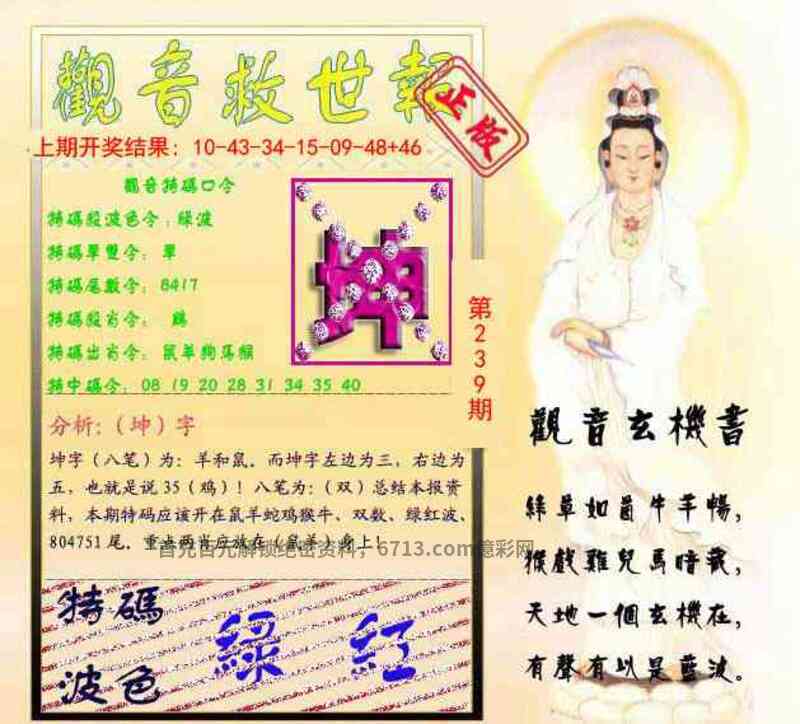 觀音救世報
正版
上期开奖结果：10-43-34-15-09-48+46
觀音特碼口令
特碼殺波色令：綠波
特碼單雙令：單
特碼尾數令：8417
特碼殺肖令：鷄
特碼出肖令：鼠羊狗馬猴
特中碼令：08 19 20 28 31 34 35 40
坤
第239期
分析:（坤）字
坤字（八笔）为：羊和鼠．而坤字左边为三，右边为
五，也就是说35（鸡）！八笔为：（双）总结本报资
料，本期特码应该开在鼠羊蛇鸡猴牛、双数、绿红波、
804751尾．重点两肖应放在（鼠羊）身上！
首先首先解锁绝密资料，6713.com億彩网
特碼
波色
綠 紅
觀音玄機書
綠草如茵牛羊暢，
猴戲雞兒馬暗藏，
天地一個玄機在，
有聲有以是藍波。